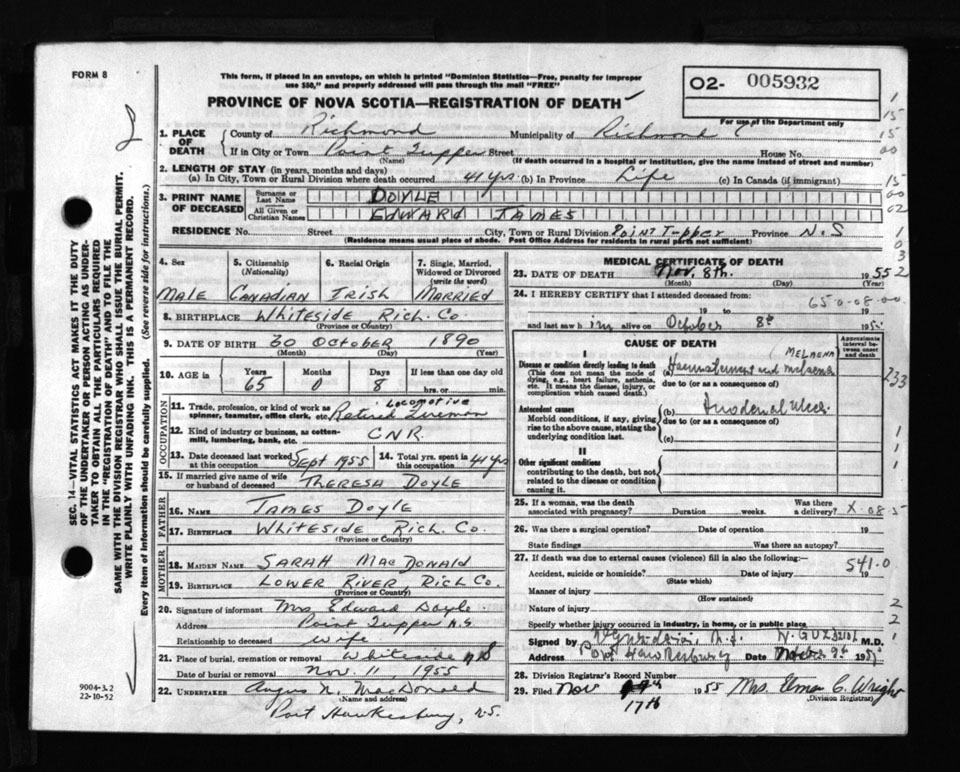 FORM 8
This form, if placed in an envelope, on which is printed "Dominion Statistics—Free, penalty for improper
use $50," and properly addressed will pass through the mail "FREE"
PROVINCE OF NOVA SCOTIA—REGISTRATION OF DEATH
02- 005932
For use of the Department only
1. PLACE OF DEATH County of Richmond Municipality of Richmond
If in City or Town Point Tupper Street House No.
(Name) (If death occurred in a hospital or institution, give the name instead of street and number)
2. LENGTH OF STAY (in years, months and days)
(a) In City, Town or Rural Division where death occurred 41 yrs (b) In Province Life (c) In Canada (if immigrant)
3. PRINT NAME OF DECEASED Surname or Last Name DOYLE
All Given or Christian Names EDWARD JAMES
RESIDENCE No. Street City, Town or Rural Division Point Tupper Province N.S
(Residence means usual place of abode. Post Office Address for residents in rural parts not sufficient)
4. Sex 5. Citizenship (Nationality) 6. Racial Origin 7. Single, Married, Widowed or Divorced (write the word)
MALE CANADIAN IRISH MARRIED
8. BIRTHPLACE WHITESIDE RICH. CO.
(Province or Country)
9. DATE OF BIRTH 30 OCTOBER 1890
(Month) (Day) (Year)
10. AGE in Years Months Days If less than one day
65 0 8 hrs. or min.
OCCUPATION
11. Trade, profession, or kind of work as spinner, teamster, office clerk, etc. Retired Locomotive Fireman
12. Kind of industry or business, as cotton-mill, lumbering, bank, etc. CNR.
13. Date deceased last worked at this occupation Sept 1955 14. Total yrs. spent in this occupation 41 yrs
15. If married give name of wife or husband of deceased THERESA DOYLE
FATHER
16. NAME JAMES DOYLE
17. BIRTHPLACE WHITESIDE RICH. CO.
(Province or Country)
MOTHER
18. MAIDEN NAME SARAH MACDONALD
19. BIRTHPLACE LOWER RIVER RICH CO.
(Province or Country)
20. Signature of informant Mrs Edward Doyle.
Address Point Tupper N.S
Relationship to deceased wife
21. Place of burial, cremation or removal Whiteside NS
Date of burial or removal Nov. 11 1955
22. UNDERTAKER Angus N. MacDonald
(Name and address)
Port Hawkesbury, N.S.
MEDICAL CERTIFICATE OF DEATH
23. DATE OF DEATH Nov. 8th. 1955
(Month) (Day) (Year)
24. I HEREBY CERTIFY that I attended deceased from:
19 to 19
650-08-00
and last saw him alive on October 8th 195
CAUSE OF DEATH
Approximate interval between onset and death
I
Disease or condition directly leading to death
(This does not mean the mode of dying, e.g., heart failure, asthenia, etc. It means the disease, injury, or complication which caused death.)
(MELAENA
due to (or as a consequence of)
Antecedent causes
Morbid conditions, if any, giving rise to the above cause, stating the underlying condition last.
(b) Duodenal Ulcer.
due to (or as a consequence of)
(c)
II
Other significant conditions
contributing to the death, but not related to the disease or condition causing it.
25. If a woman, was the death associated with pregnancy? Duration weeks. Was there a delivery?
26. Was there a surgical operation? Date of operation 19
State findings Was there an autopsy?
27. If death was due to external causes (violence) fill in also the following:—
Accident, suicide or homicide? Date of injury 19
(State which)
541.0
Manner of injury
(How sustained)
Nature of injury
Specify whether injury occurred in industry, in home, or in public place
Signed by M.D.
Address Port Hawkesbury Date
28. Division Registrar's Record Number
29. Filed Nov 17th 1955 Mrs. Elmer C. Wright
(Division Registrar)
SEC. 14—VITAL STATISTICS ACT MAKES IT THE DUTY
OF THE UNDERTAKER OR PERSON ACTING AS UNDER-
TAKER TO OBTAIN ALL THE PARTICULARS REQUIRED
IN THE "REGISTRATION OF DEATH" AND TO FILE THE
SAME WITH THE DIVISION REGISTRAR WHO SHALL ISSUE THE BURIAL PERMIT.
WRITE PLAINLY WITH UNFADING INK. THIS IS A PERMANENT RECORD.
Every item of information should be carefully supplied. (See reverse side for instructions.)
9004-3.2
22-10-52